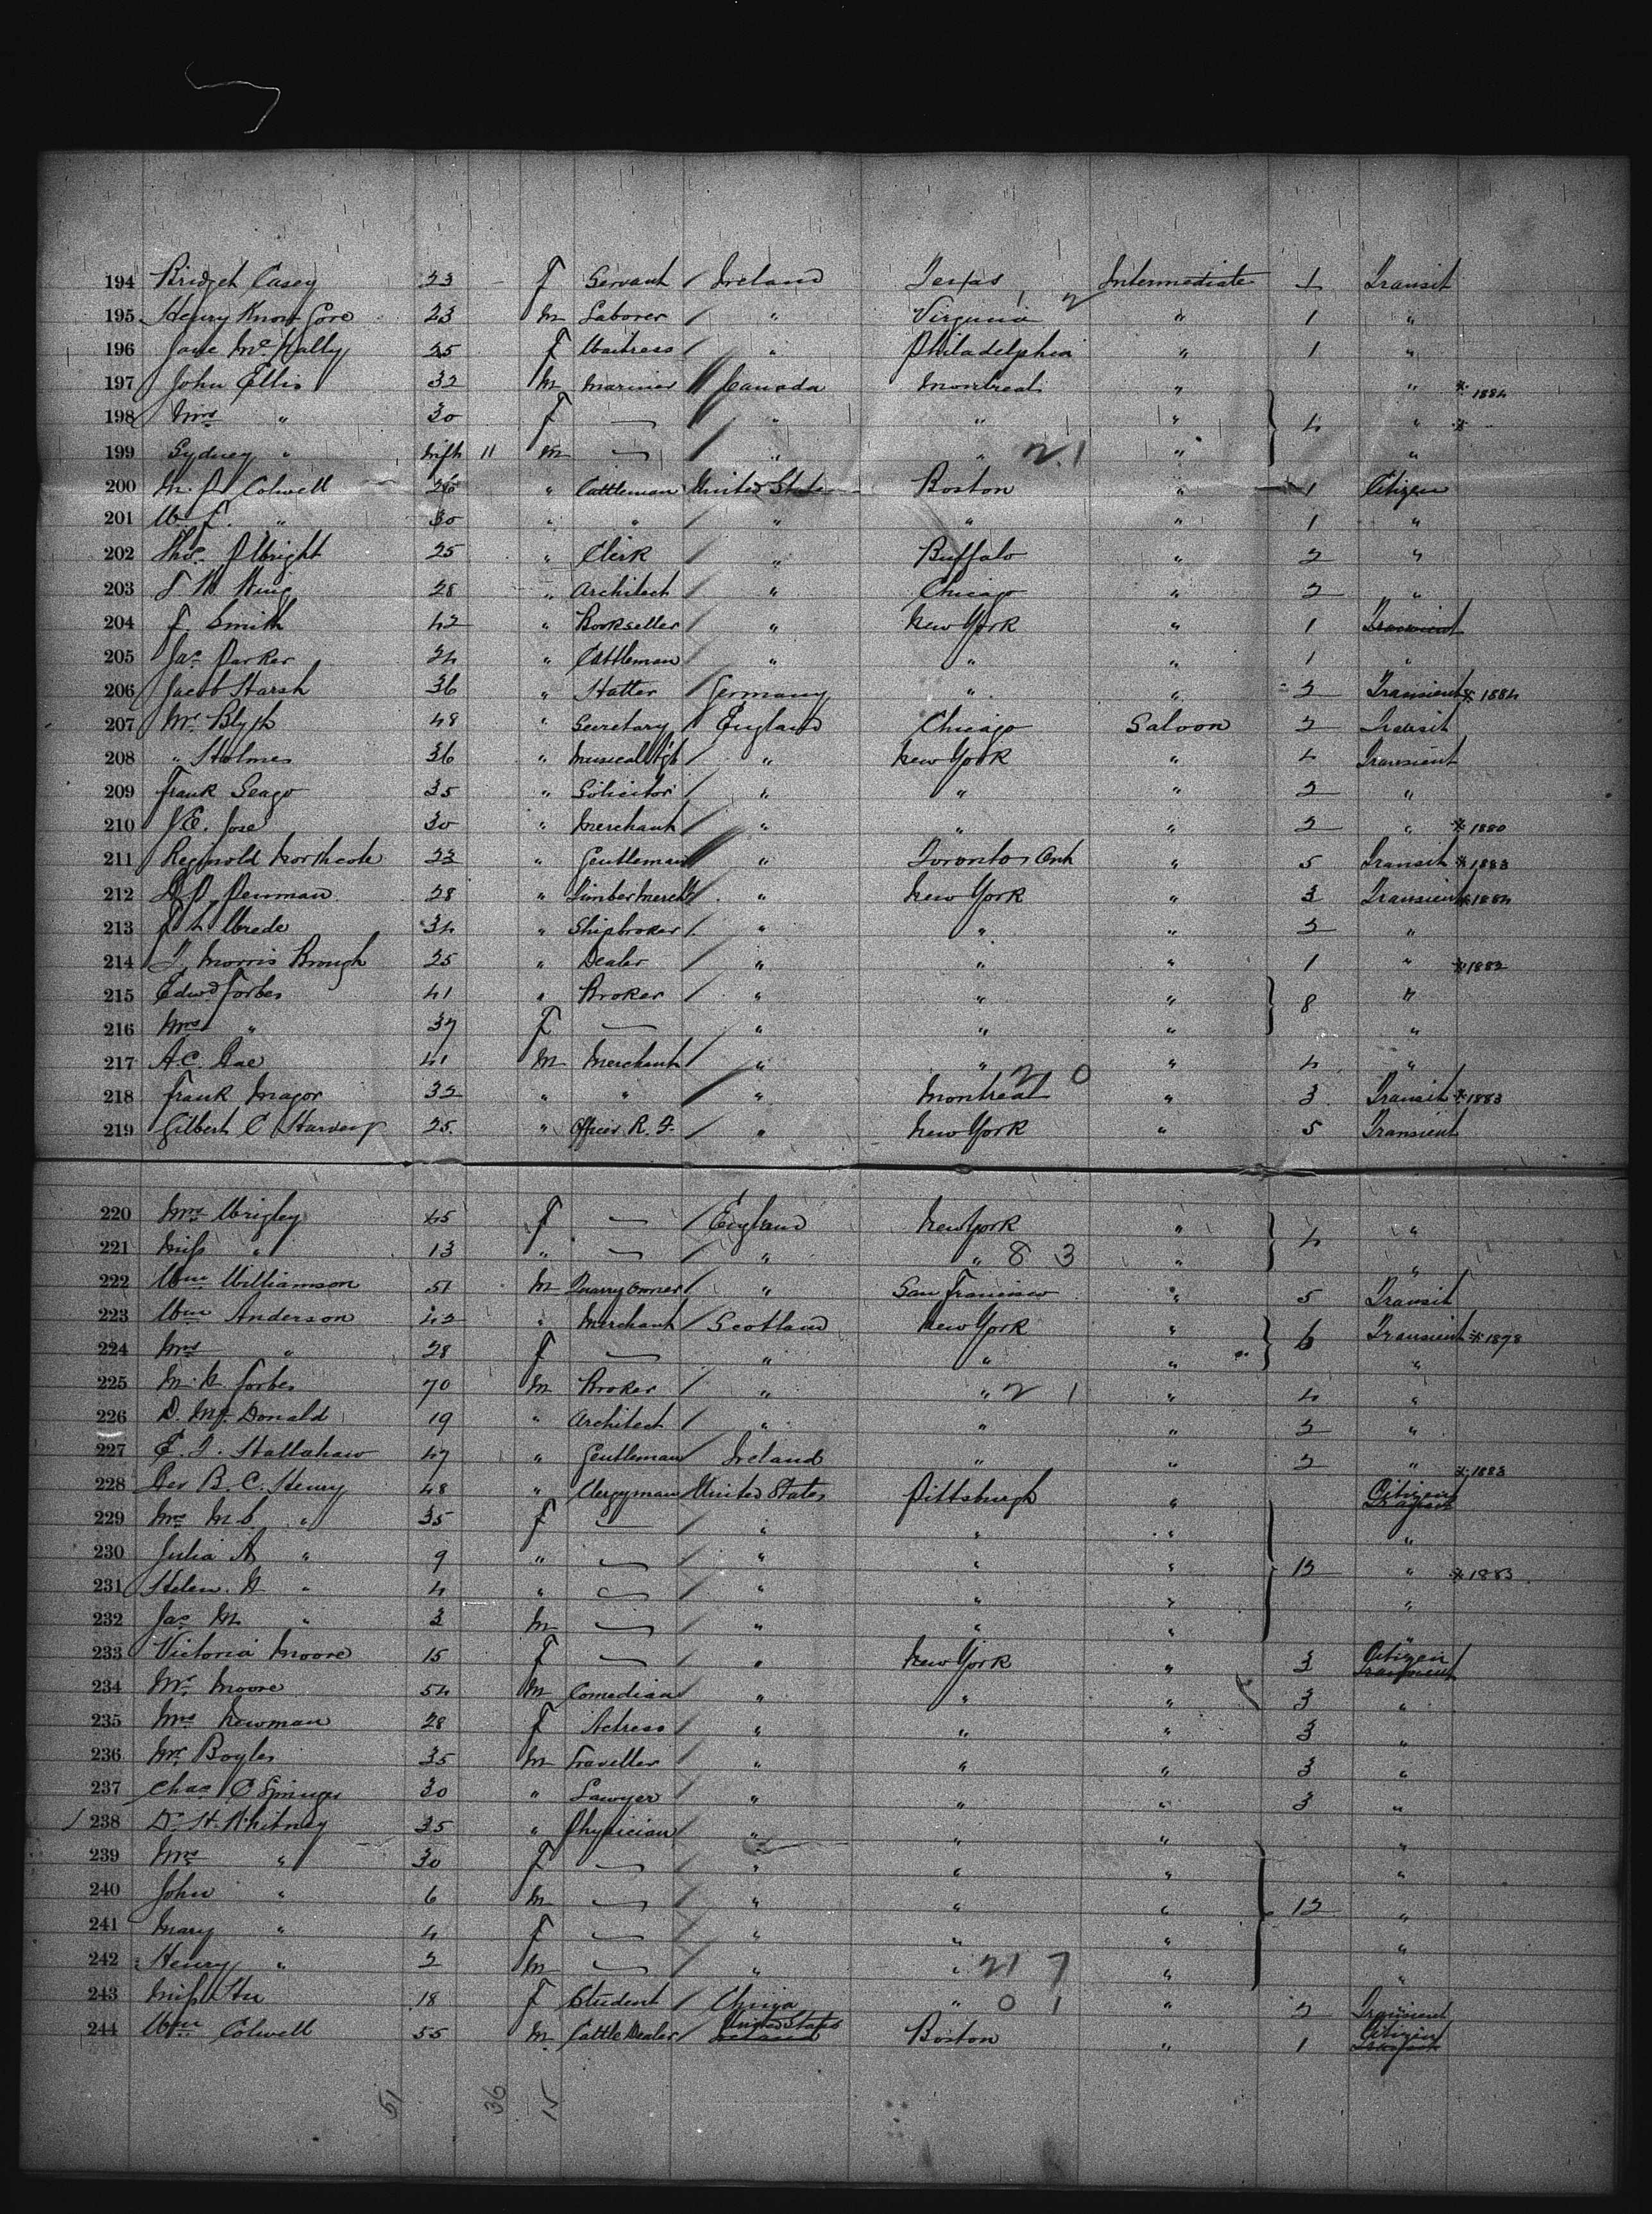 194 Bridget Casey 23 f Servant / Ireland Texas Intermediate 1 Transit
195 Henry Knox Gore 23 m Laborer / " Virginia " 1 "
196 Jane McNally 25 f Waitress / " Philadelphia " 1 "
197 John Ellis 32 m Mariner / Canada Montreal " " * 1884
198 Mrs " 30 f — / " " " 4 " *
199 Sydney " Inft 11 m — / " " " "
200 Colwell 26 " Cattleman United States Boston " 1 Citizen
201 " 30 " " / " " " 1 "
202 Thos. Albright 25 " Clerk / " Buffalo " 2 "
203 King 28 " Architect / " Chicago " 2 "
204 F Smith 42 " Bookseller / " New York " 1 Transient
205 Jas Parker 24 " Cattleman / " " " 1 "
206 Jacob Harsh 36 " Hatter / Germany " " 2 Transient * 1884
207 Mr Blyth 48 " Secretary / England Chicago Saloon 2 Transit
208 " Holmes 36 " Musical / " New York " 4 Transient
209 Frank Seago 35 " Solicitor / " " " 2 "
210 J.E. Jose 30 " Merchant / " " " 2 " * 1880
211 Reginold Northcote 22 " Gentleman / " Toronto Ont " 5 Transit * 1883
212 Penman 28 " Timber Mercht / " New York " 3 Transient * 1884
213 Wrede 34 " Shipbroker / " " " 2 "
214 Morris Brough 25 " Dealer / " " " 1 " * 1882
215 Edwd Forbes 41 " Broker / " " " 8 "
216 Mrs " 37 f — " " " "
217 A.C. Rae 41 m Merchant / " " " 4 "
218 Frank Magor 32 " " / " Montreal " 3 Transit * 1883
219 Gilbert C Harvey 25 " Officer R. / " New York " 5 Transient
220 Mrs Wrigley 45 f — / England New York " 4 "
221 Miss " 13 " — / " " 8 3 " "
222 Wm Williamson 51 m Quarry Owner / " San Francisco " 5 Transit
223 Wm Anderson 42 " Merchant / Scotland New York " 6 Transient * 1878
224 Mrs " 28 f — " " " "
225 Forbes 70 m Broker / " " 2 1 " 4 "
226 D. Donald 19 " Architect / " " " 2 "
227 E. Hallahan 47 " Gentleman Ireland " " 2 " * 1883
228 Rev B. C. Henry 48 " Clergyman United States Pittsburgh " Citizen
229 Mrs M.C. " 35 f — / " " " "
230 Julia A " 9 " — / " " " 13 " * 1883
231 Helen " 4 " — / " " " "
232 Jas M " 3 m — / " " " "
233 Victoria Moore 15 f — / " New York " 3 Citizen Transient
234 Mr Moore 54 m Comedian / " " " 3 "
235 Mrs Newman 28 f Actress / " " " 3 "
236 Mr Boyles 35 m Traveller / " " " 3 "
237 Chas C Springer 30 " Lawyer / " " " 3 "
238 Dr H. Whitney 35 " Physician / " " " "
239 Mrs " 30 f — / " " " "
240 John " 6 m — / " " " 12 "
241 Mary " 4 f — / " " " "
242 Henry " 2 m — / " " 21 7 " "
243 Miss Hu 18 f Student / China " 0 1 " 2 Transient
244 Wm Colwell 55 m Cattle Dealer / United States Ireland Boston " 1 Citizen
51 36 15